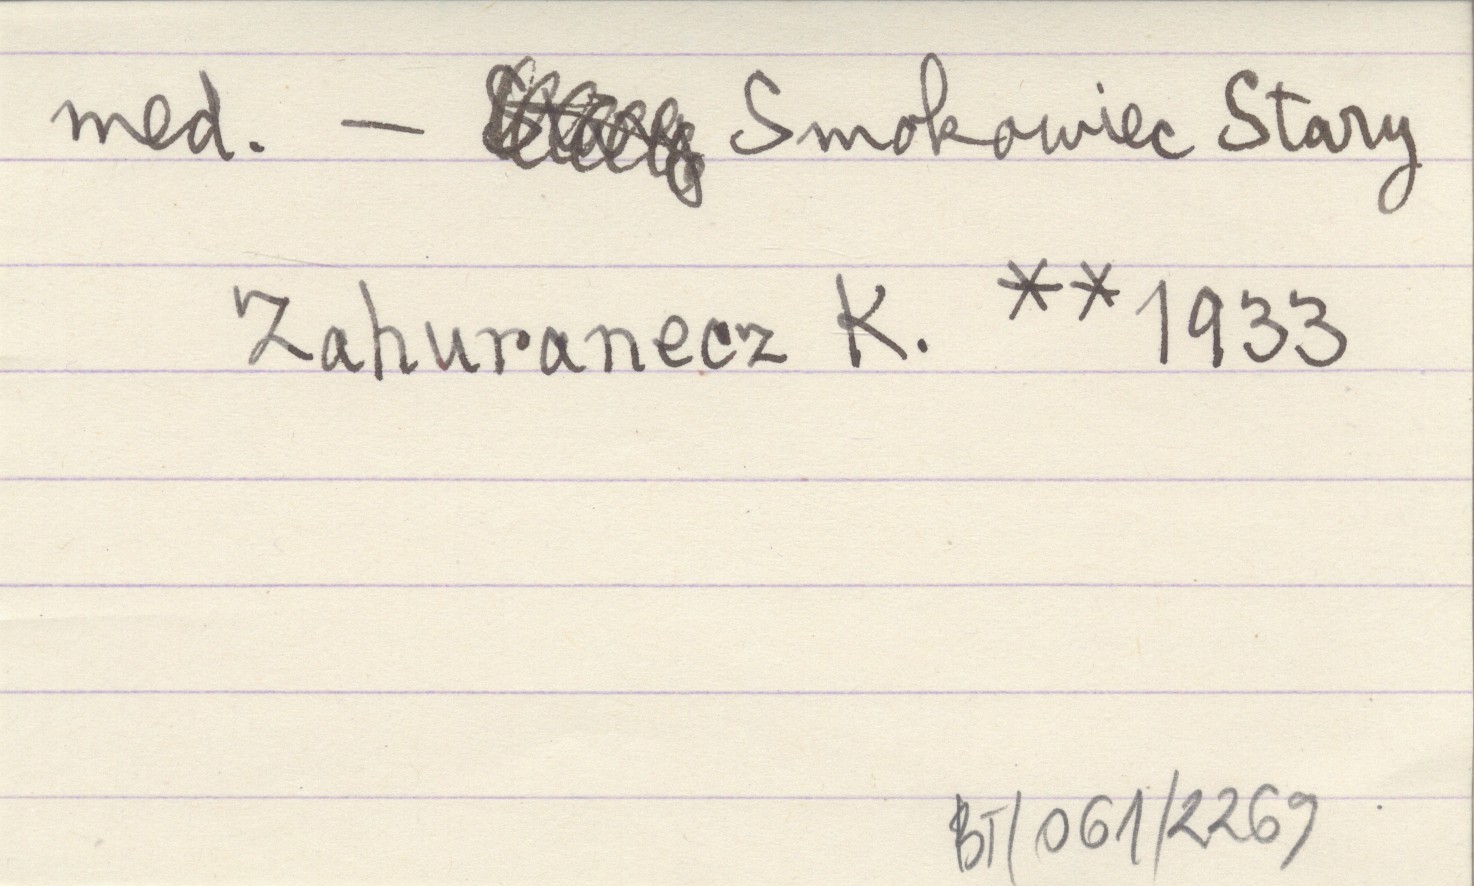 med. — Smokowiec Stary
Zahuranecz K. ** 1933
BT/061/2269